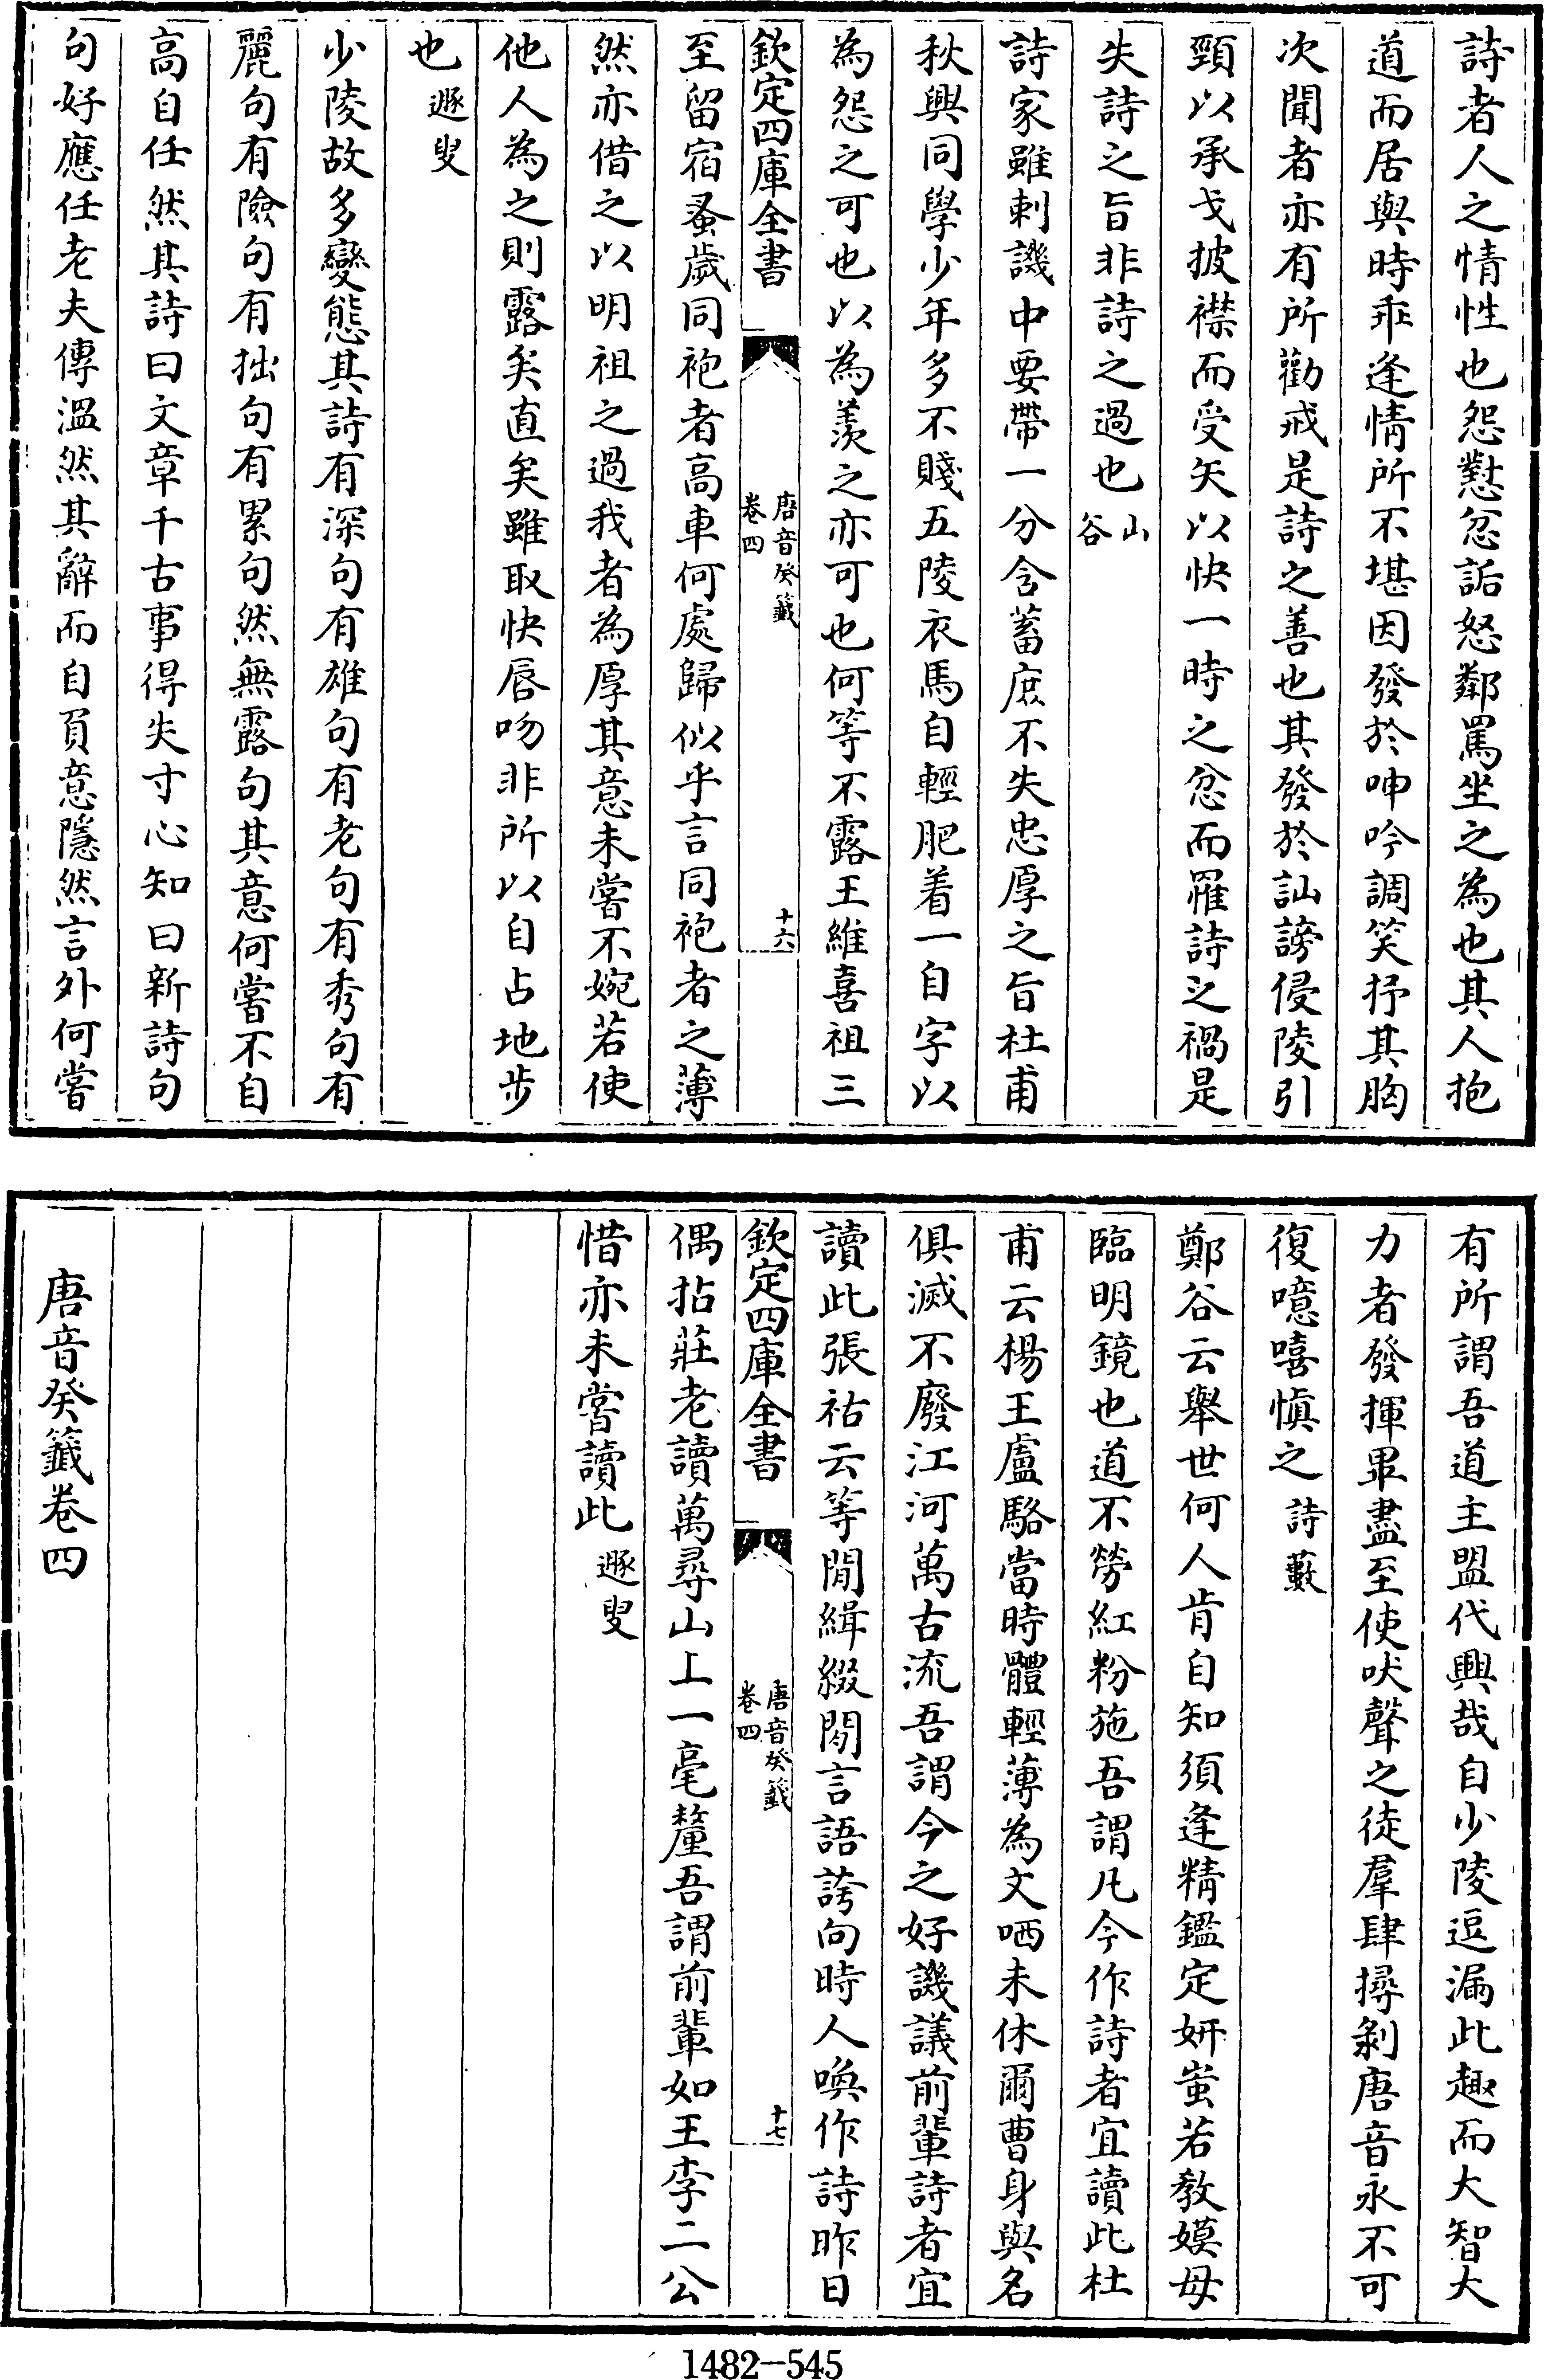 詩者人之情性也怨懟忿詬怒鄰罵坐之為也其人抱
道而居與時乖逢情所不堪因發於呻吟調笑抒其胸
次聞者亦有所勸戒是詩之善也其發於訕謗侵陵引
頸以承戈披襟而受矢以快一時之忿而罹詩之禍是
失詩之旨非詩之過也山谷
詩家雖刺譏中要帶一分含蓄庶不失忠厚之旨杜甫
秋興同學少年多不賤五陵衣馬自輕肥着一自字以
為怨之可也以為羨之亦可也何等不露王維喜祖三
欽定四庫全書 唐音癸籤 卷四 十六
至留宿蚤歲同袍者高車何處歸似乎言同袍者之薄
然亦借之以明祖之過我者為厚其意未嘗不婉若使
他人為之則露矣直矣雖取快唇吻非所以自占地步
也遯叟
少陵故多變態其詩有深句有雄句有老句有秀句有
麗句有險句有拙句有累句然無露句其意何嘗不自
高自任然其詩曰文章千古事得失寸心知曰新詩句
句好應任老夫傳溫然其辭而自負意隱然言外何嘗
有所謂吾道主盟代興哉自少陵逗漏此趣而大智大
力者發揮畢盡至使吠聲之徒羣肆撏剝唐音永不可
復噫嘻愼之詩藪
鄭谷云舉世何人肯自知須逢精鑑定妍蚩若教嫫母
臨明鏡也道不勞紅粉施吾謂凡今作詩者宜讀此杜
甫云楊王盧駱當時體輕薄為文哂未休爾曹身與名
俱滅不廢江河萬古流吾謂今之好譏議前輩詩者宜
讀此張祜云等閒緝綴閑言語誇向時人喚作詩昨日
欽定四庫全書 唐音癸籤 卷四 十七
偶拈莊老讀萬尋山上一毫釐吾謂前輩如王李二公
惜亦未嘗讀此遯叟
唐音癸籤卷四
1482—545